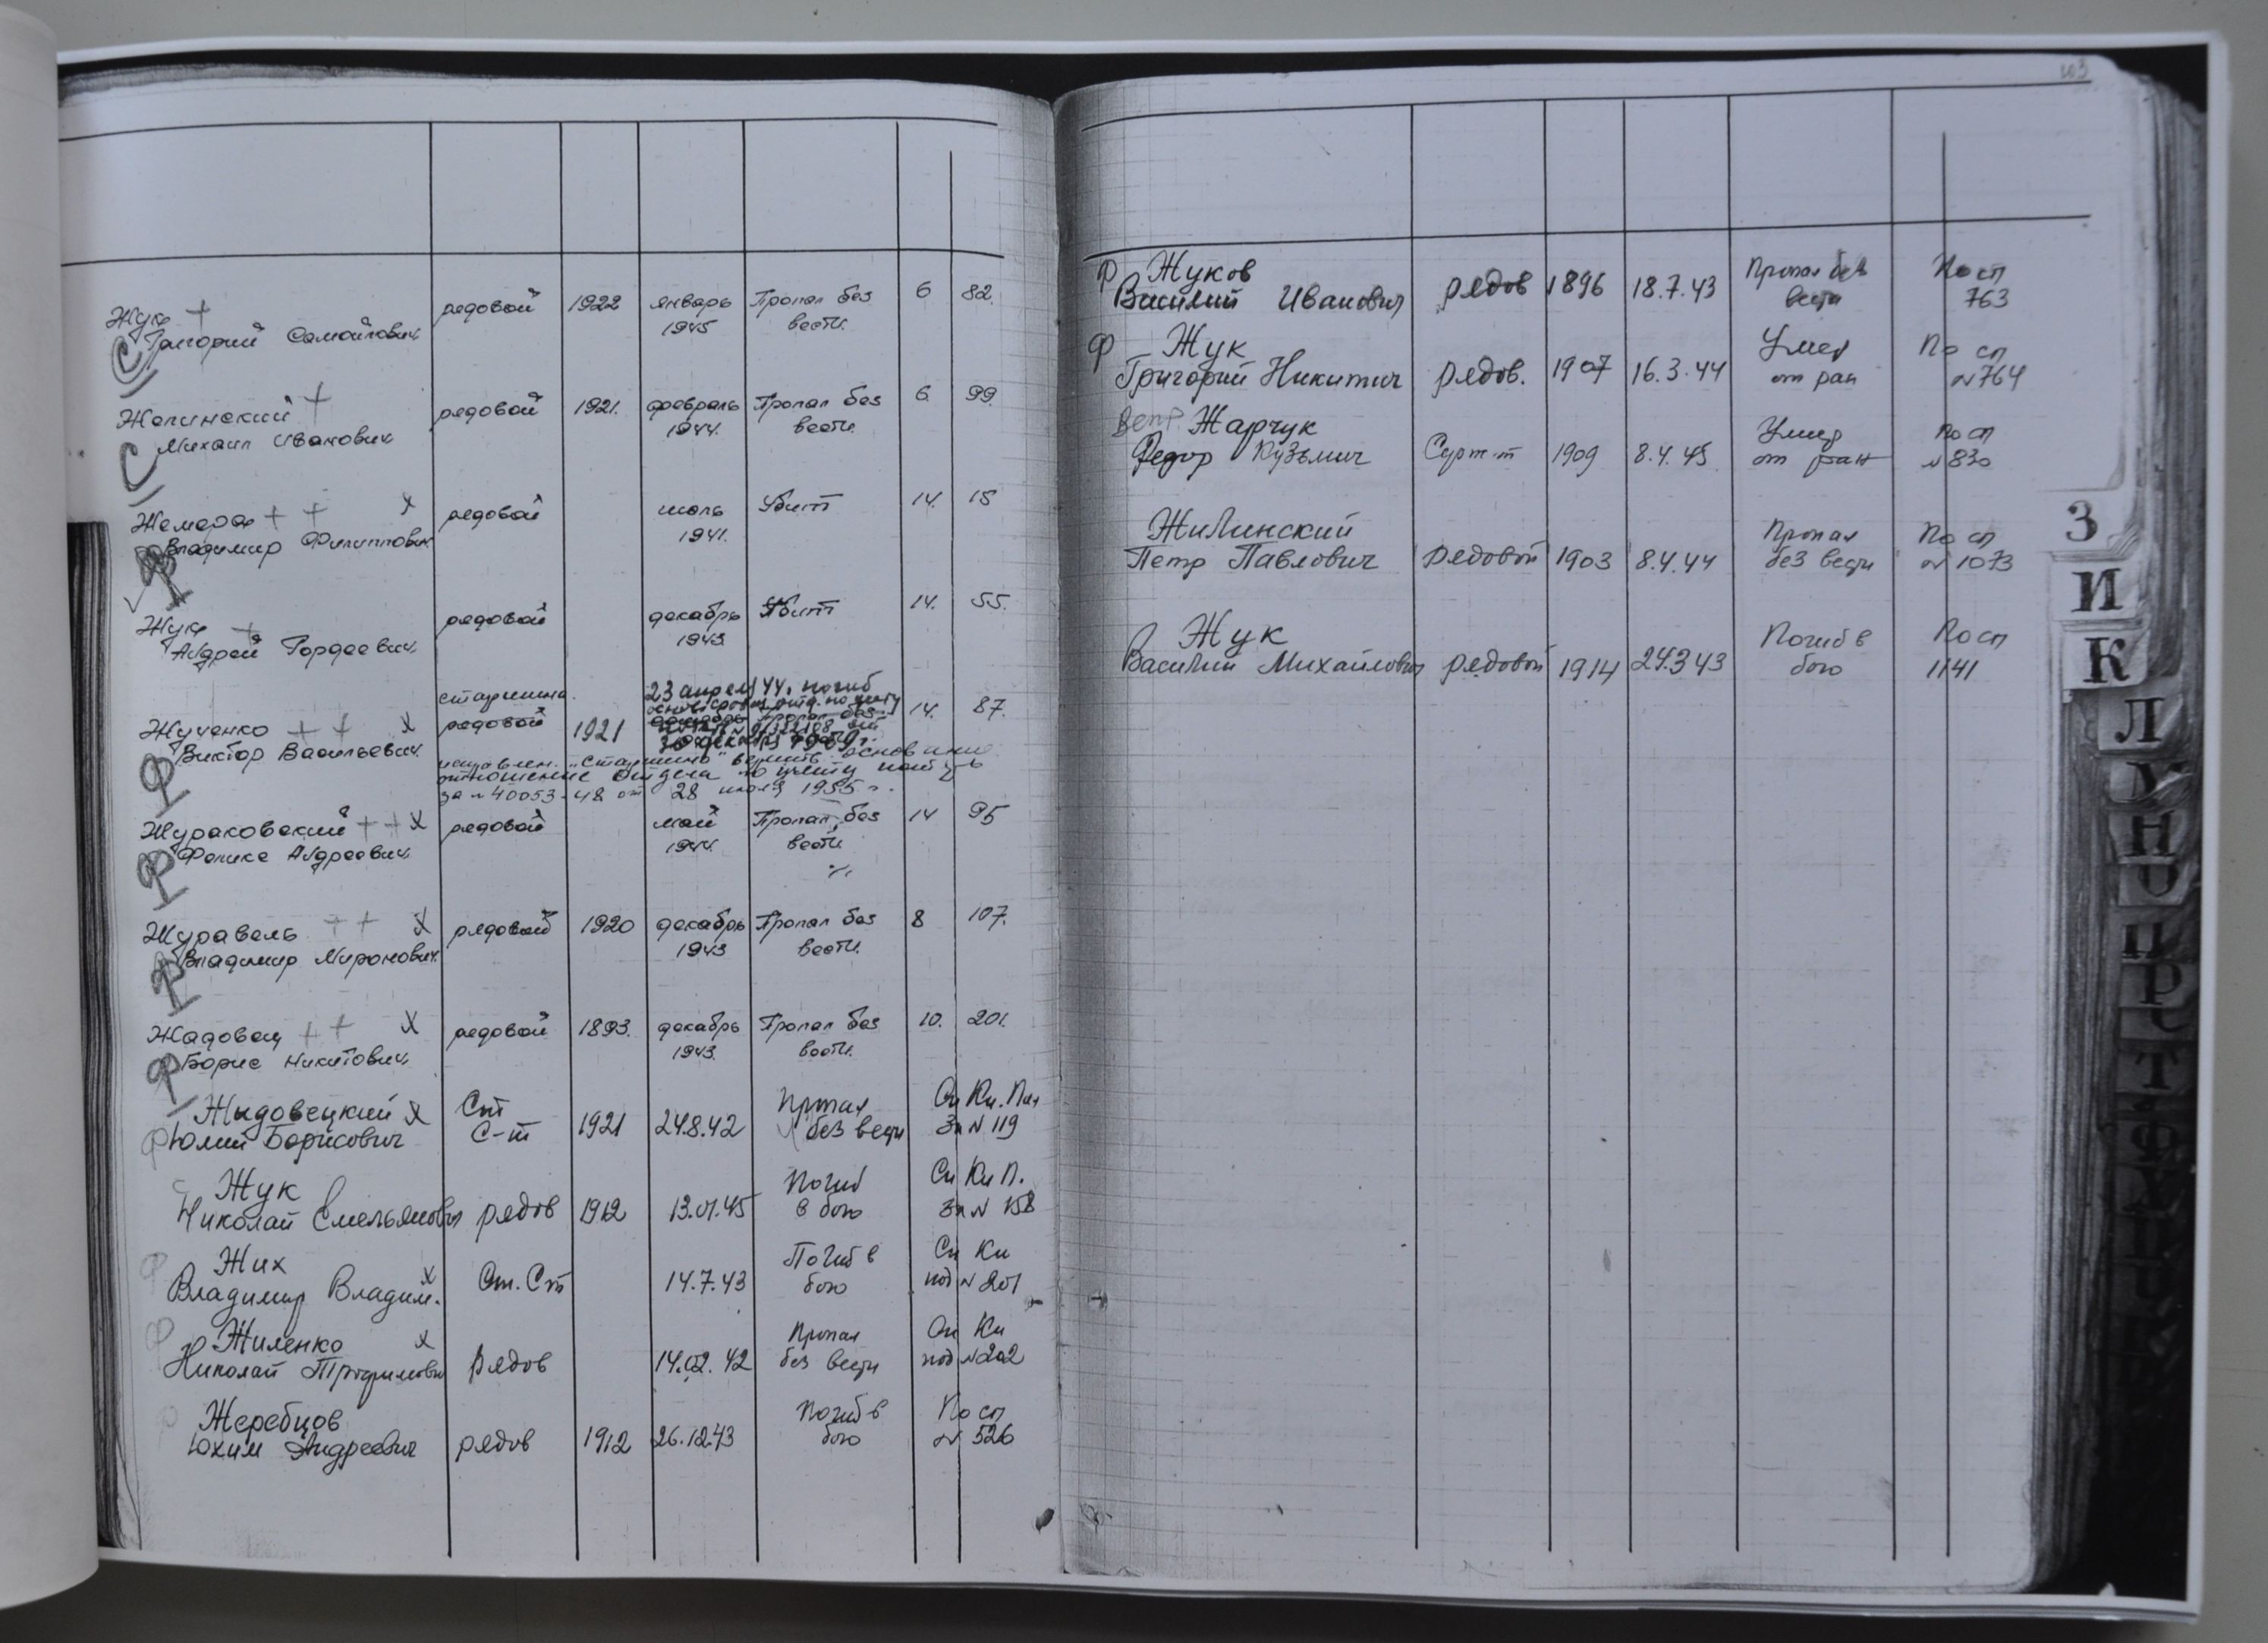 Жук + редовой 1922 январь Пропал без 6 82.
Григорий Самойлович 1945 вести.
С
Жолинский + редовой 1921. февраль Пропал без 6 99.
Михаил Иванович 1944. вести.
С
Жемера + + х редовой июль Убит 14. 15
Владимир Филиппович 1941.
Ф
Жук + редовой декабрь Убит 14. 55.
Андрей Гордеевич 1943
старшина. 23 апреля 44. погиб
Жученко + + х редовой 1921 14. 87.
Виктор Васильевич
Ф
исправлен. "старшина" основание
отношение отдела по учету
за №40053-48 от 28 июля 1955 г.
Жураковский + + х редовой май Пропал без 14 95
Феликс Андреевич 1944. вести
Ф
Журавель + + х рядовой 1920 декабрь Пропал без 8 107.
Владимир Миронович 1943 вести.
Ф
Жадовец + + х редовой 1893. декабрь Пропал без 10. 201.
Борис Никитович 1943. вести.
Ф
Жыдовецкий х Ст Пропал Сп Кн.
Ф Юлий Борисович С-т 1921 24.8.42 без вести За № 119
с Жук Погиб Сп Кн П.
Николай Емельянович рядов 1912 13.01.45 в бою За № 158
Ф Жих Погиб в Сп Кн
Владимир Владим. х Ст. Ст 14.7.43 бою под № 201
Ф Жиленко х Пропал Сп Кн
Николай Трофимович рядов 14.02.42 без вести под № 202
Ф Жеребцов Погиб в По сп
Юхим Андреевич рядов 1912 26.12.43 бою № 526
103
Ф Жуков Пропал без По сп
Василий Иванович рядов 1896 18.7.43 вести 763
Ф Жук Умер По сп
Григорий Никитич рядов. 1907 16.3.44 от ран №764
Жарчук Умер По сп
Федор Кузьмич Серж-т 1909 8.4.45 от ран №830
Жилинский Пропал По сп
Петр Павлович рядовой 1903 8.4.44 без вести № 1073
Жук Погиб в По сп
Василий Михайлович рядовой 1914 24.3.43 бою 1141
З
И
К
Л
Н
О
П
Р
С
Т